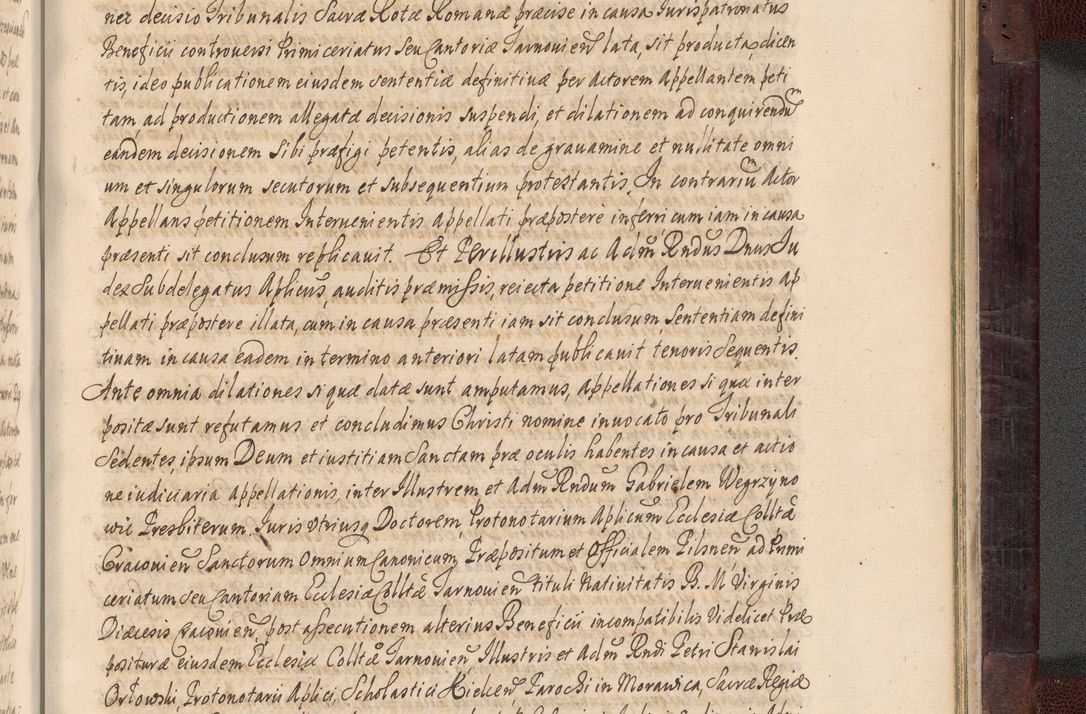 nec decisio Tribunalis Sacræ Rotæ Romanæ præcise in causa Iurispatronatus
Beneficii controversi Primiceriatus seu Cantoriæ Tarnovien̄ lata, sit producta, dicen
tis, ideo publicationem eiusdem sententiæ definitivæ per Actorem Appellantem peti
tam, ad productionem allegatæ decisionis suspendi, et dilationem ad conquirendū
eandem decisionem sibi præfigi petentis, alias de gravamine et nullitate omni
um et singulorum secutorum et subsequentium protestantis. In contrariū Actor
Appellans petitionem Intervenientis appellati præpostere inferri cum iam in causa
præsenti sit conclusum replicavit. Et Perillustris ac Adm̄ Rndus Dnus Iu
dex Subdelegatus Aplicus, auditis præmissis, reiecta petitione Intervenientis Ap
pellati præpostere illata, cum in causa præsenti iam sit conclusum Sententiam defini
tivam in causa eadem in termino anteriori latam publicavit tenoris Sequentis.
Ante omnia dilationes si quæ datæ sunt amputamus, appellationes si quæ inter
positæ sunt refutamus et concludimus Christi nomine invocato pro Tribunali
Sedentes, ipsum Deum et iustitiam Sanctam præ oculis habentes in causa et actio
ne iudiciaria appellationis, inter Illustrem et Adm̄ Rndum Gabrielem Wegrzyno
wic Presbiterum. Iuris Utriusq Doctorem, Protonotarium Aplicum Ecclesiæ Colltæ
Cracovien̄ Sanctorum Omnium Canonicum, Præpositum et Officialem Pilsnen̄ ad Primi
ceriatum seu Cantoriam Ecclesiæ Colltæ Tarnovien̄ tituli Nativitatis B. M. Virginis
Diæcesis Cracovien̄, post assecutionem alterius Beneficii incompatibilis Videlicet Præ
positura eiusdem Ecclesiæ Colltæ Tarnovien̄ Illustris et Adm̄ Rndi Petri Stanislai
Orłowski, Protonotarii Aplici, Scholastici Kielcen̄, Parochi in Morawica, Sacræ Regiæ